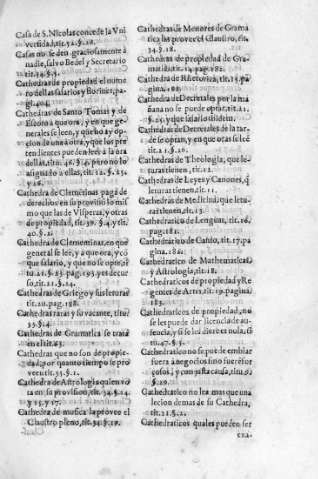 Casa de S. Nicolas concede la Vni
versidad, tit. 32. §. 18.
Casas no se den graciosamente à
nadie, salvo Bedel y Secretario
Cathedras de propiedad el nume
ro dellas salarios y Borines, pa-
Cathedras de Santo Tomas y de
Escoto à que ora, y en que ge-
nerales se leen, y que ho ay op-
cion de una à otra, y que los pre
tendientes pueden leer à la ora
dellas, tit. 46. §. 4. pero no lo
asignado à ellas, tit. 12. §. 23.
y 26.
Cathedra de Clementinas paga de
derechos en su provisió lo mis
mo que las de Visperas, y otras
de propiedad, tit. 39. §. 4. y tit.
40. §. 2.
Cathedra de Clementinas, en que
general se lee, y a que ora, y co
que salario, y que no se opte, ti
tu. 21. §. 23. pag. 193. yet decur
so, tit. 21. §. 24.
Cathedras de Griego y sus leturas
tit. 20. pag. 188.
Cathedras raras y su vacante, titu:
33. §. 4.
Cathedras de Gramatica se trata
en el tit. 63.
Cathedras que no son de propie-
dad, por quanto tiempo se pro
veen tit. 33. §. 1.
Cathedra de Astrologia quien vo
ta en su provision, tit. 34. §. 14.
y 15. y 17.
Cathedra de musica la provee el
Claustro pleno, tit. 34. §. 19.
Cathedras de Menores de Grama
tica las provee el Claustro, tit.
34. §. 18.
Cathedras de propiedad de Gra-
matica tit. 14. pag. 182.
Cathedra de Rhetorica, tit. 15. pa
gina 182.
Cathedra de Decretales por la ma
ñana no se puede optar, tit. 21.
§. 25. y que salario si se dem.
Cathedras de Decretales de la tar-
de se optan, y en que otas se leé
tit. 21. §. 26.
Cathedras de Theologia, que le-
turas tienen, tit. 12.
Cathedras de Leyes y Canones, q̃
leturas tienen, tit. 11.
Cathedras de Medicina que letu-
ras tienen, tit. 13.
Cathedratico de Lenguas, tit. 16.
pag. 182.
Cathedratico de Canto, tit. 17. pa
gina. 182.
Cathedratico de Mathematicas
y Astrologia, tit. 18.
Cathedraticos de propiedad y Re
gentes de Artes, tit. 19. pagina
183.
Cathedraticos de propiedad, no
se les puede dar licencia de au-
sencia, y si se les diere es nula, ti
tu. 47. §. 5.
Cathedratico no se puede embiar
fuera à negocios sino fuere for
çoso, y con justa causa, titu. 9.
§. 29.
Cathedratico no lea mas que una
lecion demas de su Cathedra,
tit. 21. §. 2.
Cathedraticos quales pueden ser